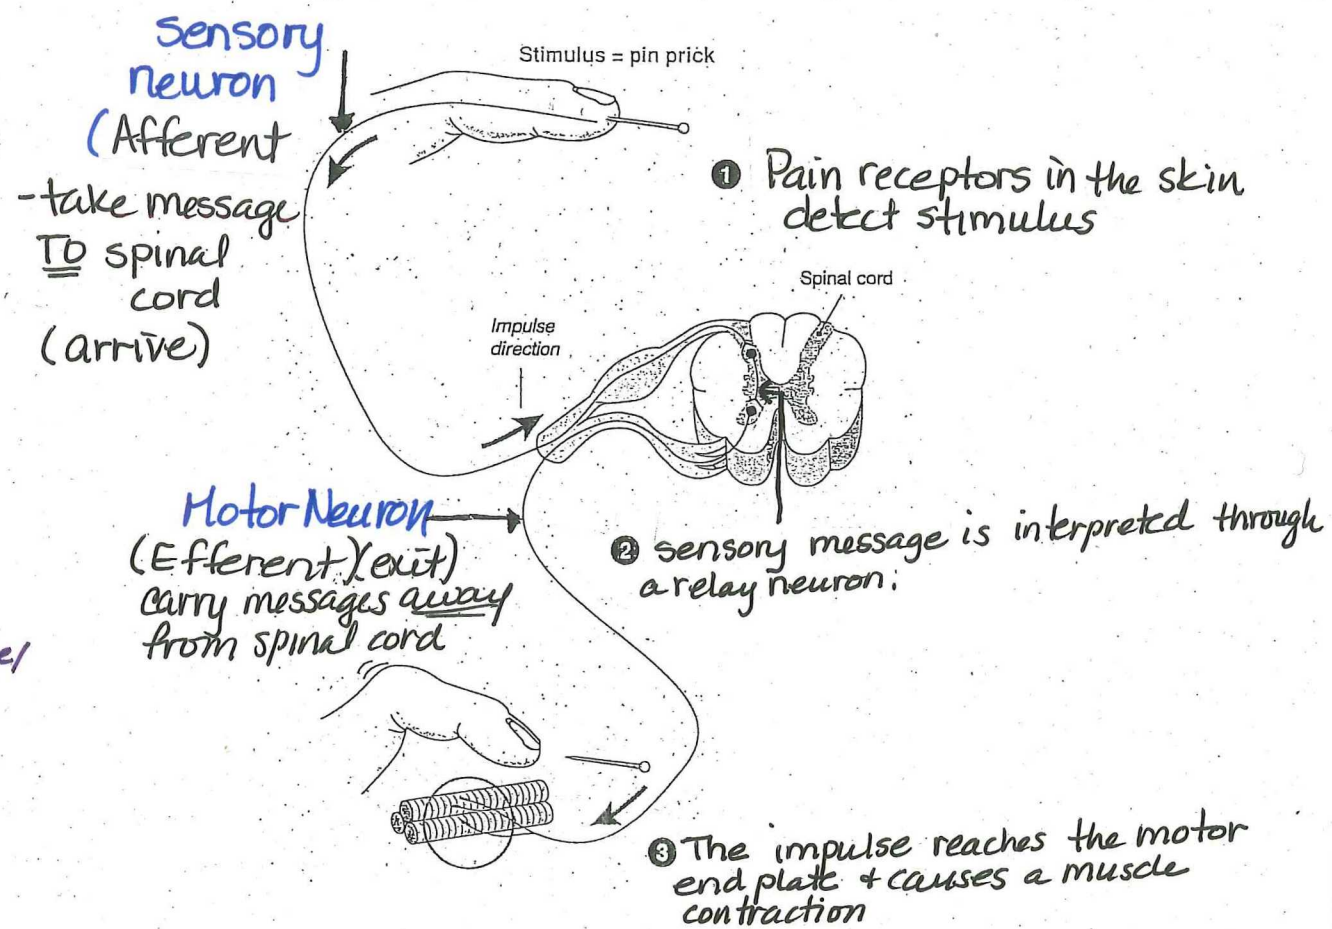 Sensory
neuron
(Afferent
-take message
TO spinal
cord
(arrive)
Stimulus = pin prick
❶ Pain receptors in the skin
detect stimulus
Spinal cord
Impulse
direction
Motor Neuron
(Efferent)(exit)
carry messages away
from spinal cord
❷ sensory message is interpreted through
a relay neuron.
❸ The impulse reaches the motor
end plate & causes a muscle
contraction